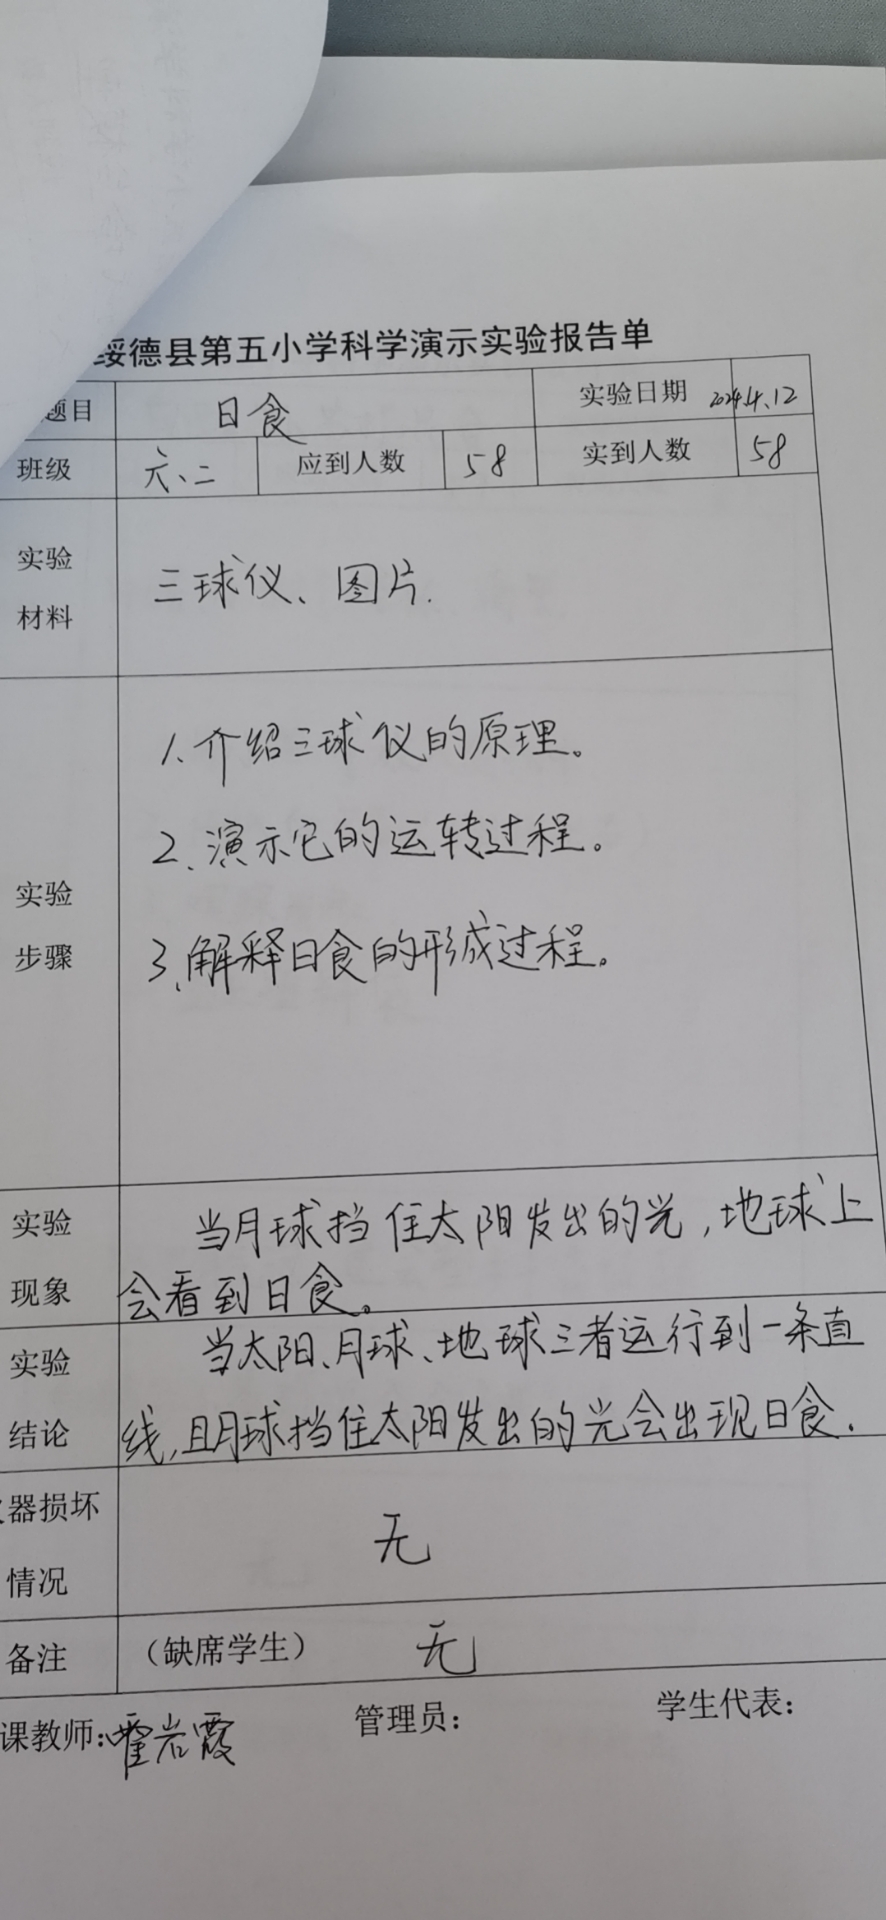 绥德县第五小学科学演示实验报告单
题目 日食 实验日期 2024.4.12
班级 六、二 应到人数 58 实到人数 58
实验
材料
三球仪、图片.
1、介绍三球仪的原理。
2、演示它的运转过程。
实验
步骤
3、解释日食的形成过程。
实验
现象
当月球挡住太阳发出的光,地球上
会看到日食。
实验
结论
当太阳、月球、地球三者运行到一条直
线,且月球挡住太阳发出的光会出现日食.
器损坏
情况
无
备注 (缺席学生) 无
课教师:霍岩霞 管理员: 学生代表: